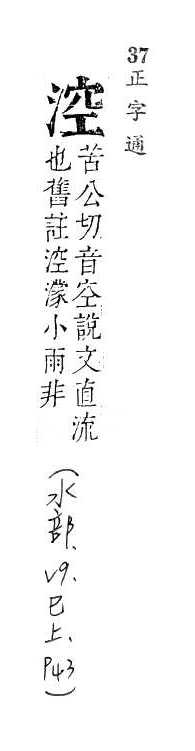 37正字通
涳
苦公切音空說文直流
也舊註涳濛小雨非
(水部、v9、巳上、P43)